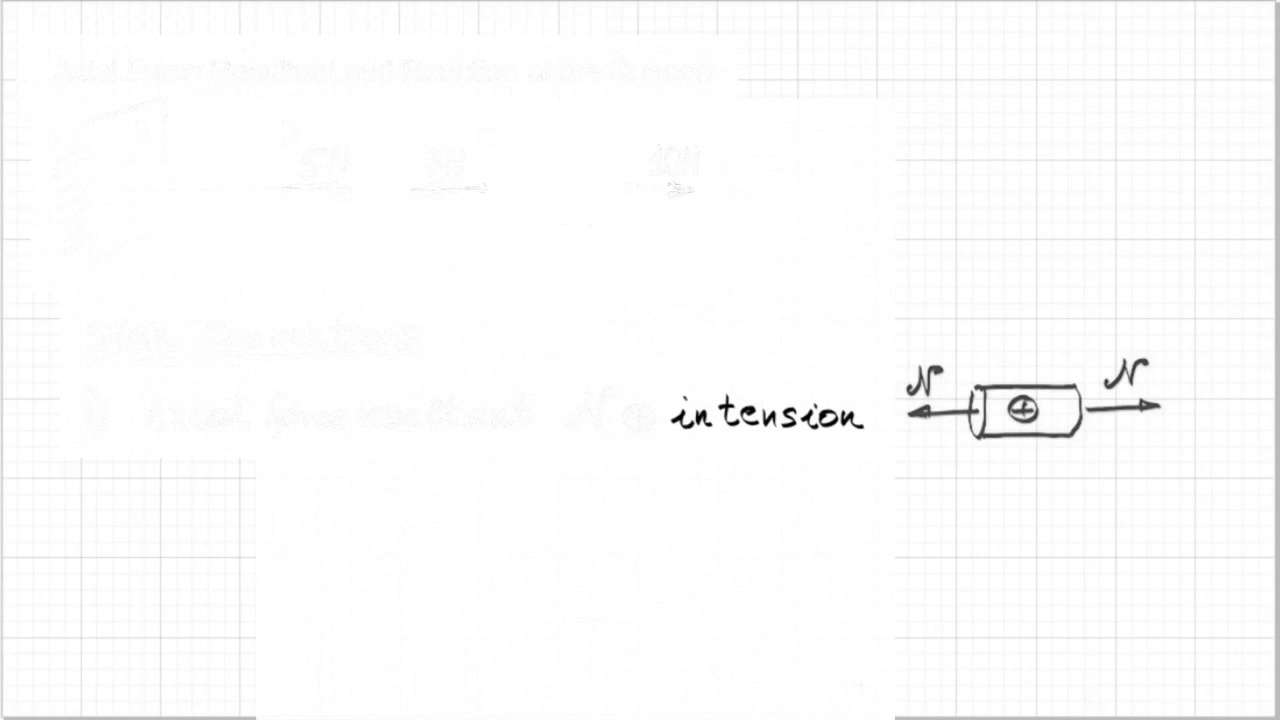 Axial Force Resultant and Reaction at the Support
5N 7N 10N
Sign Conventions
1) Axial force resultant N ⊕ in tension
N ⊕ N